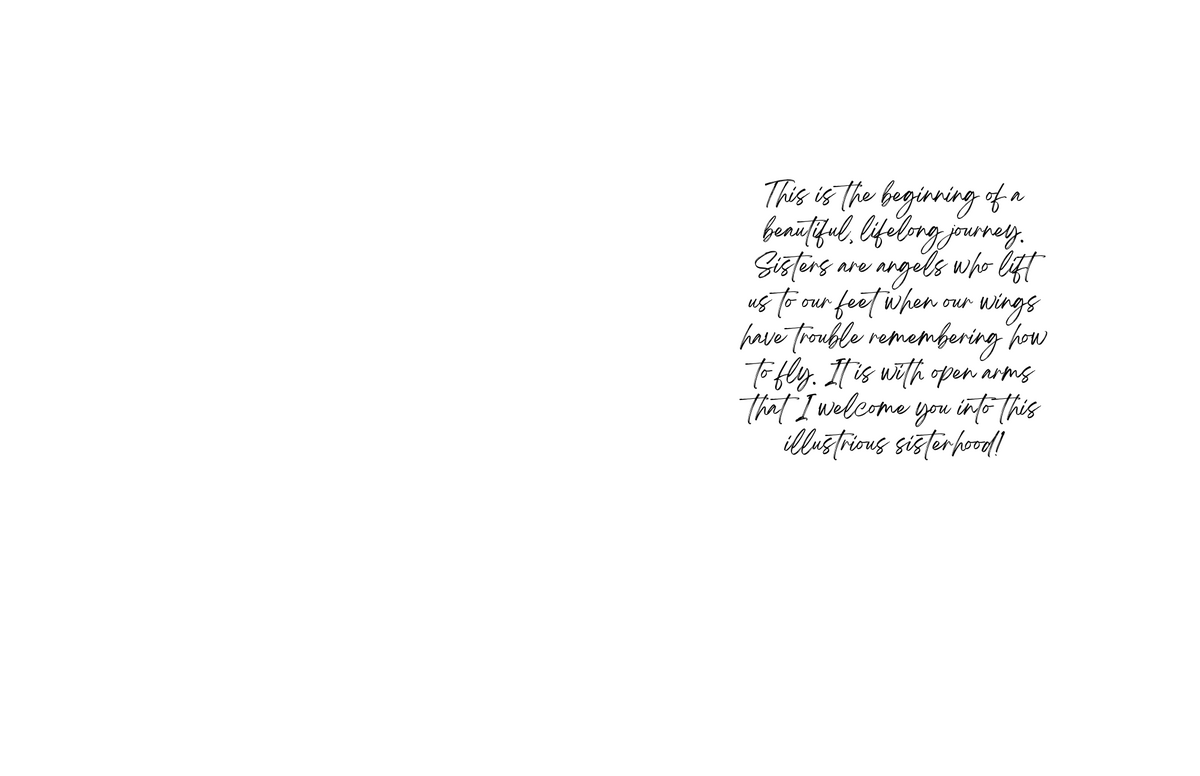 This is the beginning of a
beautiful, lifelong journey.
Sisters are angels who lift
us to our feet when our wings
have trouble remembering how
to fly. It is with open arms
that I welcome you into this
illustrious sisterhood!